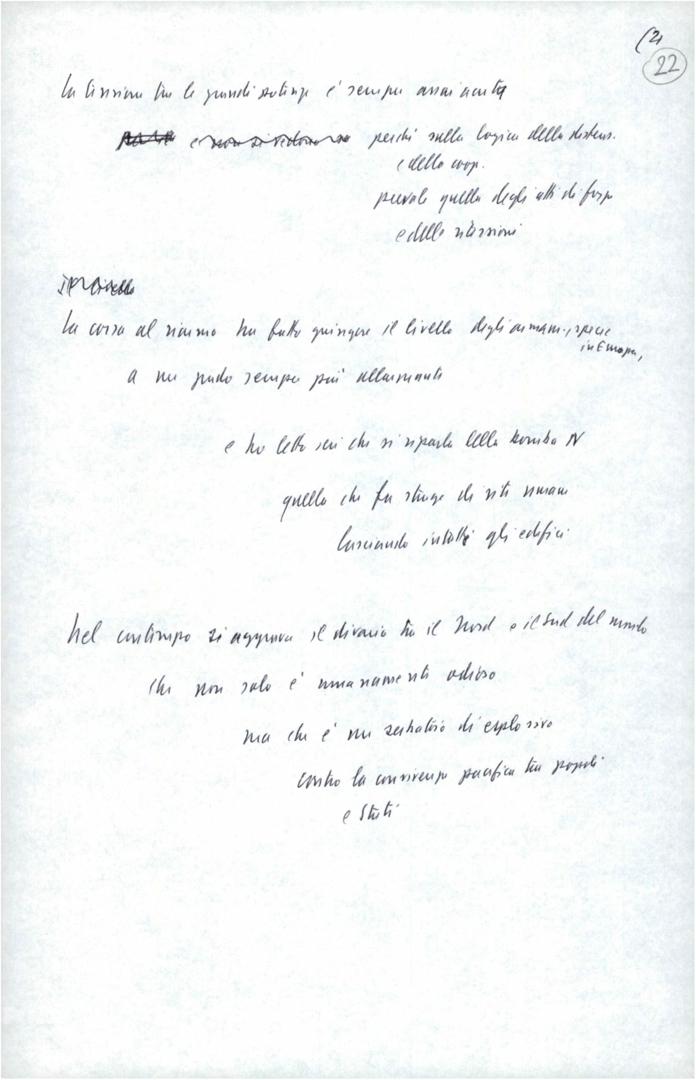 (2
22
La tensione tra le grandi potenze è sempre assai acuta
e non si riduce perché sulla logica della distens.
e della coop.
prevale quella degli atti di forza
e delle ritorsioni
Il livello
La corsa al riarmo ha fatto giungere il livello degli armam., specie
in Europa,
a un grado sempre più allarmante
e ho letto ieri che si riparla della bomba N
quella che fa strage di vite umane
lasciando intatti gli edifici
Nel contempo si aggrava il divario tra il Nord e il Sud del mondo
che non solo è umanamente odioso
ma che è un serbatoio di esplosivo
contro la convivenza pacifica tra popoli
e Stati